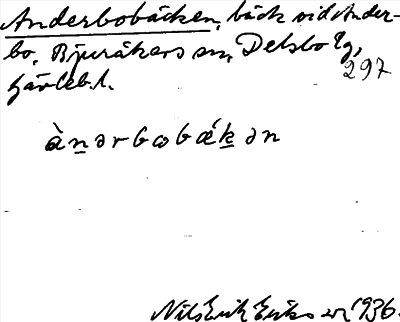 Anderbobäcken, bäck vid Ander-
bo, Bjuråkers sn, Delsbo tg,
Gävleb. l.
297
ànərbobǽkən
Nils Erik Eriksson 1936.